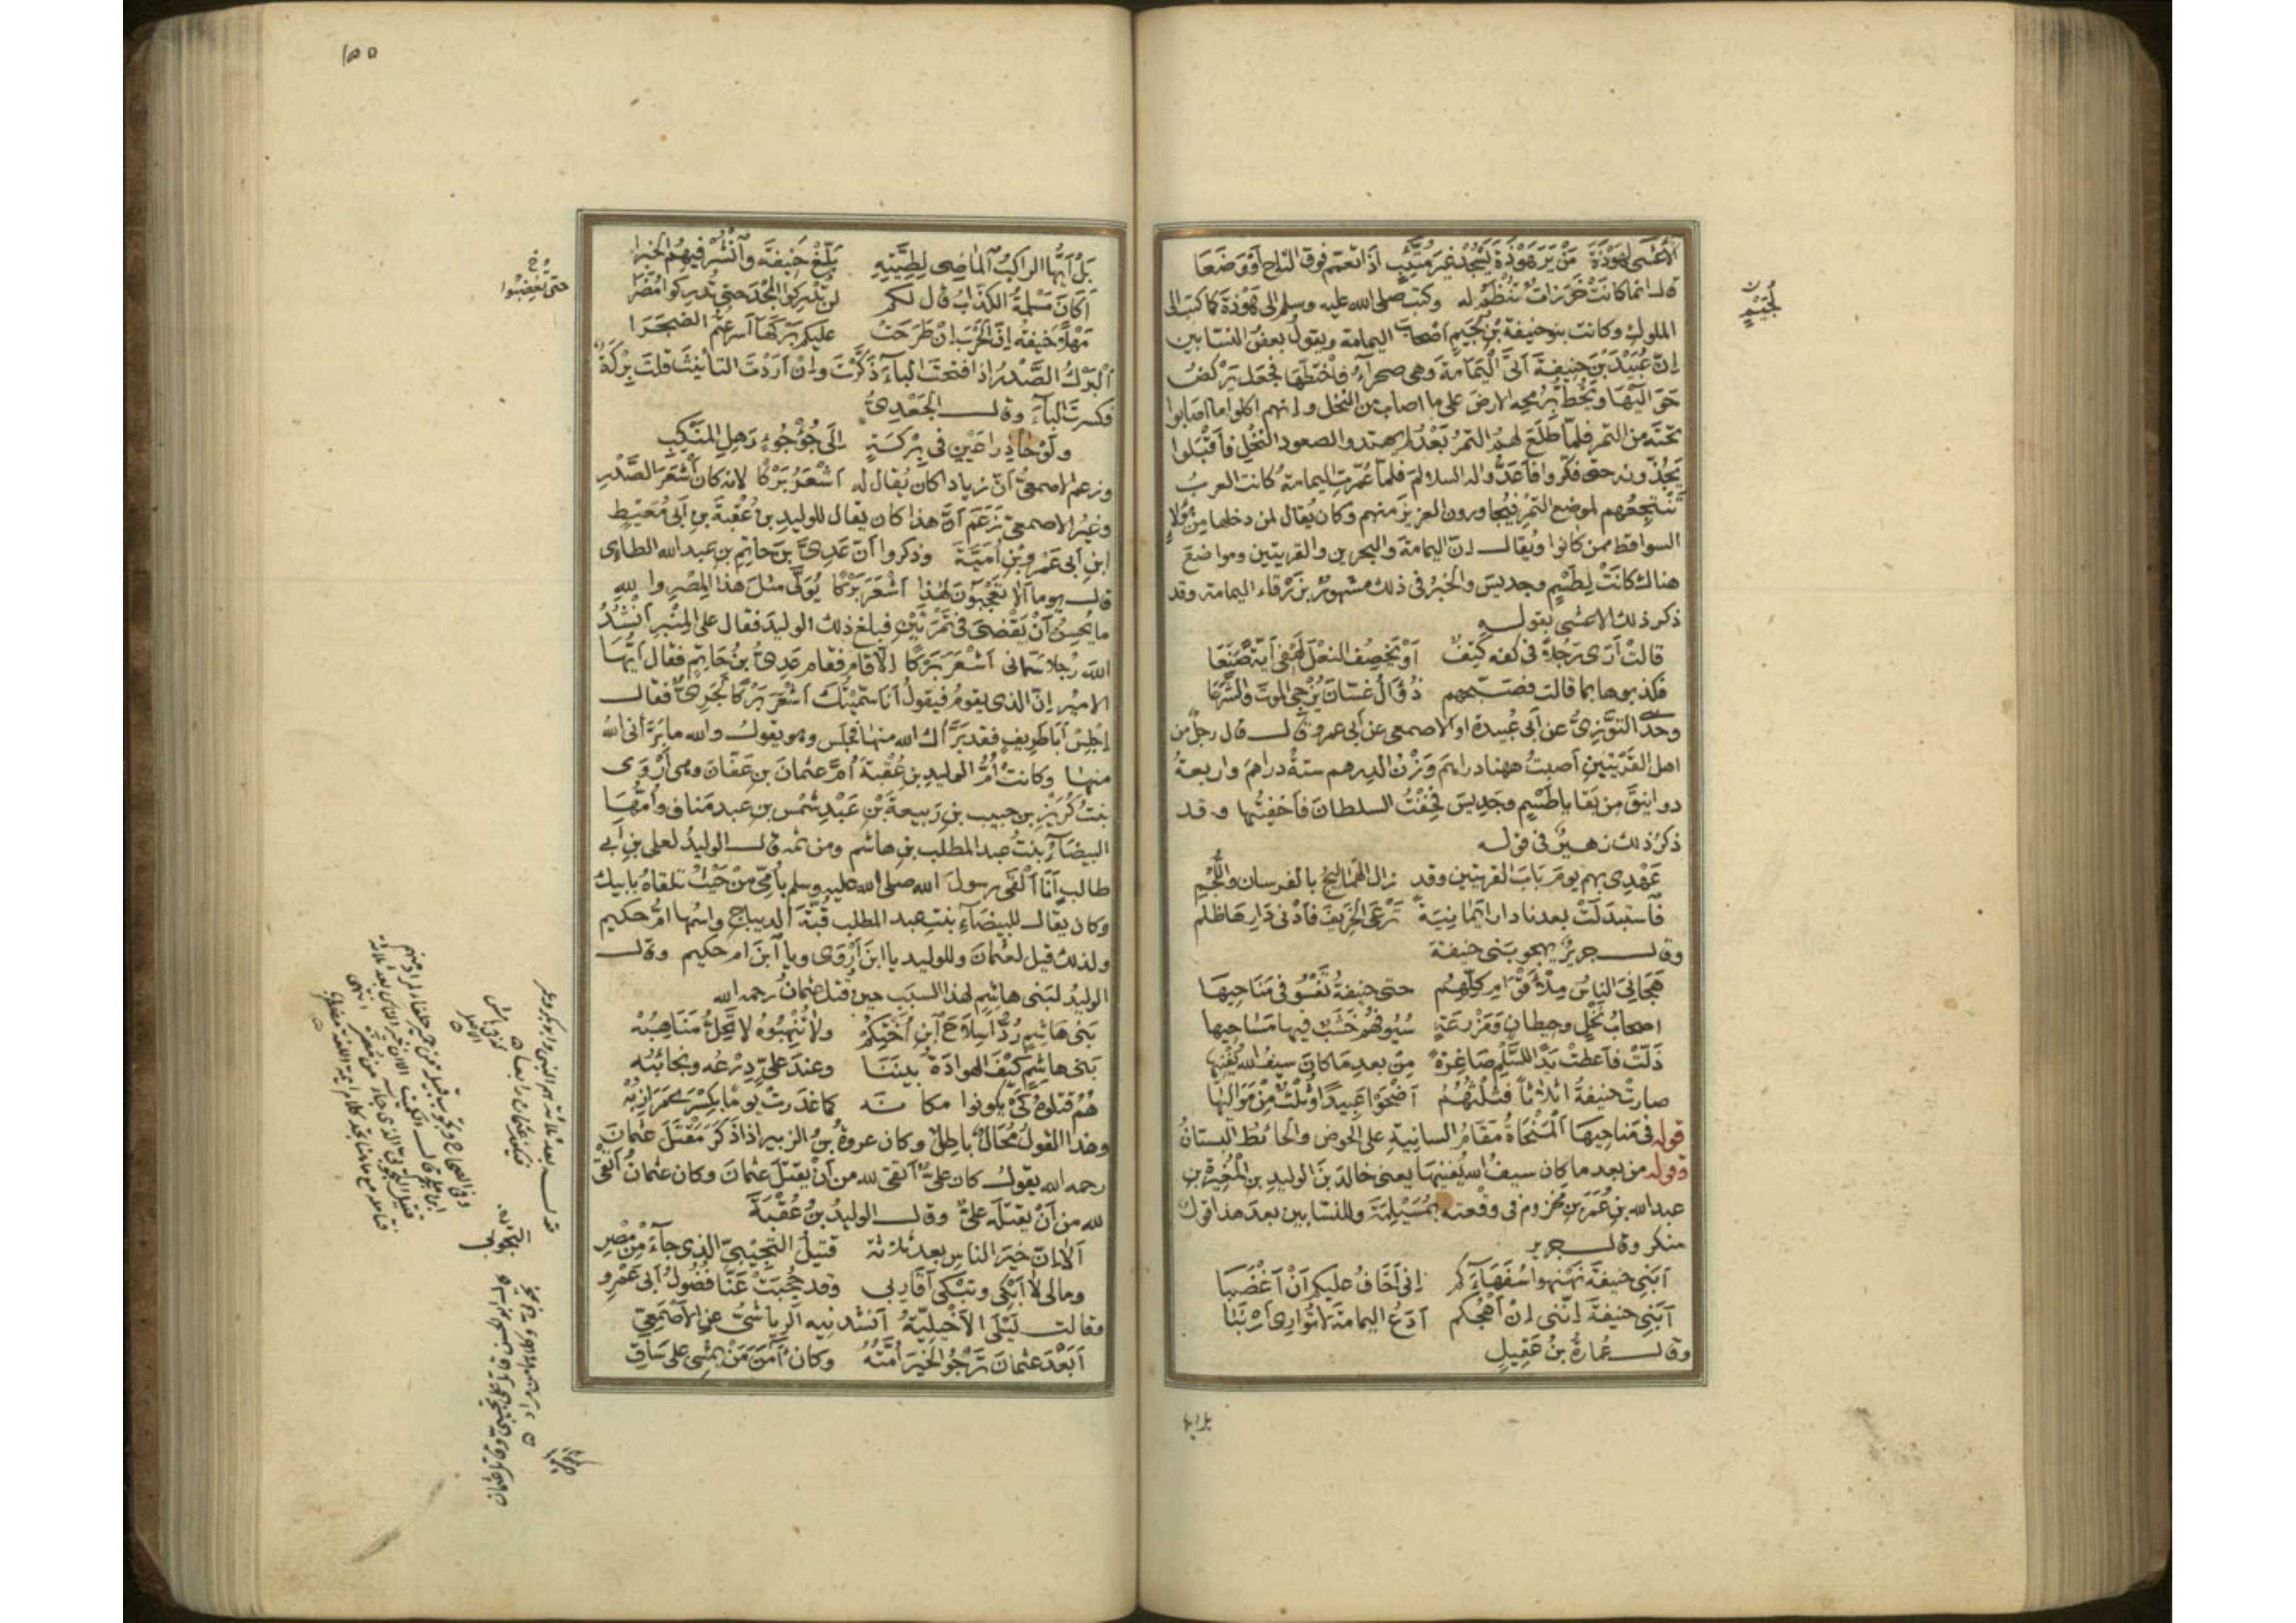 الأعشى لهوذة من ير هوذة يسجد غير متئب اذا تعمم فوق التاج أو وضعا
قال انما كانت خرزات تنظم له وكتب صلى الله عليه وسلم الى هوذة كما كتب الى
الملوك وكانت بنو حنيفة بن لجيم اصحاب اليمامة ويقول بعض النسابين
إن عبيد بن حنيفة أتى اليمامة وهي صحراء فاختطها فجعل يركض
حواليها ويخط برمحه الارض على ما اصاب من النخل وانهم اكلوا ما اصابوا
تحته من التمر فلما طلع لهم التمر بعد لم يهتدوا لصعود النخل فأقبلوا
يجذونه حتى فكروا فأعدوا له السلالم فلما عمرت اليمامة كانت العرب
تنتجعهم لموضع التمر فيجاورون العزيز منهم وكان يقال لمن دخلها من هؤلاء
السواقط ممن كانوا ويقال ان اليمامة والبحرين والقريتين ومواضع
هناك كانت لطسم وجديس والخبر في ذلك مشهور بن زرقاء اليمامة وقد
ذكر ذلك الاعشى بقوله
قالت أرى رجلا في كفه كتف أو يخصف النعل لهفي أية صنعا
فكذبوها بما قالت فصبحهم ذو آل غسان يزجي الموت والشرعا
وحدثني التوزي عن أبي عبيدة او الاصمعي عن أبي عمرو قال قال رجل من
اهل القريتين أصبت ههنا دراهم وزن الدرهم ستة دراهم واربعة
دوانيق من بقايا طسم وجديس فخفت السلطان فأخفيتها وقد
ذكر ذلك زهير في قوله
عهدي بهم يوم باب القريتين وقد زال الهماليج بالفرسان واللجم
فاستبدلت بعدنا دارا يمانية ترعى الخريف فأدنى دارها ظلم
وقال جرير يهجو بني حنيفة
هجاني الناس من الأقوام كلهم حتى حنيفة تفسو في مناحيها
اصحاب نخل وحيطان ومزرعة سيوفهم خشب فيها مساحيها
ذلت فأعطت يدا للسلم صاغرة من بعد ما كان سيف الله يفنيها
صارت حنيفة اثلاثا فثلثهم أضحوا عبيدا وثلث من مواليها
قوله في مناحيها المنحاة مقام السانية على الحوض والحائط البستان
وقوله من بعد ما كان سيف الله يفنيها يعني خالد بن الوليد بن المغيرة بن
عبد الله بن عمر بن مخزوم في وقعته بمسيلمة وللنسابين بعد هذا قول
منكر وقال جرير
أبني حنيفة نهنهوا سفهاءكم إني أخاف عليكم أن أغضبا
أبني حنيفة إنني إن أهجكم أدع اليمامة لا تواري أرنبا
وقال عمارة بن عقيل
بل ايها
لجيم
١٥٥
بل أيها الراكب الماضي لطيته بلغ حنيفة وانشر فيهم الخبرا
أكان مسلمة الكذاب قال لكم لن تدركوا المجد حتى تدركوا مضرا
مهلا حنيفة إن الحرب إن طرحت عليكم بركها أسرعتم الضجرا
البرك الصدر اذا فتحت الباء ذكرت وإن أردت التأنيث قلت بركة
فكسرت الباء وقال الجعدي
ولوحا ذراعين في بركة إلى جؤجؤ رهل المنكب
وزعم الاصمعي أن زيادا كان يقال له أشعر بركا لانه كان أشعر الصدر
وغير الاصمعي زعم أن هذا كان يقال للوليد بن عقبة بن أبي معيط
ابن أبي عمرو بن أمية وذكروا أن عدي بن حاتم بن عبد الله الطائي
قال يوما ألا تعجبون لهذا أشعر بركا يولى مثل هذا المصر والله
ما يحسن أن يقضي في تمرتين فبلغ ذلك الوليد فقال على المنبر أنشد
الله رجلا سماني أشعر بركا إلا قام فقام عدي بن حاتم فقال أيها
الامير إن الذي يقوم فيقول أنا سميتك أشعر بركا لجريء فقال
إجلس أبا طريف فقد برأك الله منها فجلس وهو يقول والله ما برأني الله
منها وكانت أم الوليد بن عقبة أم عثمان بن عفان وهي أروى
بنت كريز بن حبيب بن ربيعة بن عبد شمس بن عبد مناف وأمها
البيضاء بنت عبد المطلب بن هاشم ومن ثمه قال الوليد لعلي بن أبي
طالب أنا ألقى رسول الله صلى الله عليه وسلم بأمي من حيث تلقاه بأبيك
وكان يقال للبيضاء بنت عبد المطلب قبة الديباج واسمها ام حكيم
ولذلك قيل لعثمان وللوليد يا ابن أروى ويا ابن ام حكيم وقال
الوليد لبني هاشم لهذا السبب حين قتل عثمان رحمه الله
بني هاشم ردوا سلاح ابن أختكم ولا تنهبوه لا تحل مناهبه
بني هاشم كيف الهوادة بيننا وعند علي درعه ونجائبه
هم قتلوه كي يكونوا مكانه كما غدرت يوما بكسرى مرازبه
وهذا القول محال باطل وكان عروة بن الزبير اذا ذكر مقتل عثمان
رحمه الله يقول كان علي أتقى لله من أن يقتل عثمان وكان عثمان أتقى
لله من أن يقتله علي وقال الوليد بن عقبة
ألا ان خير الناس بعد ثلاثة قتيل التجيبي الذي جاء من مصر
ومالي لا أبكي وتبكي أقاربي وقد حجبت عنا فضول أبي عمرو
وقالت ليلى الأخيلية أنشدنيه الرياشي عن الأصمعي
أبعد عثمان ترجو الخير أمته وكان آمن من يمشي على ساق
حتى تغضبوا
قوله بعد ثلاثة هم النبي وابو بكر وعمر
فيكون عثمان رابعا